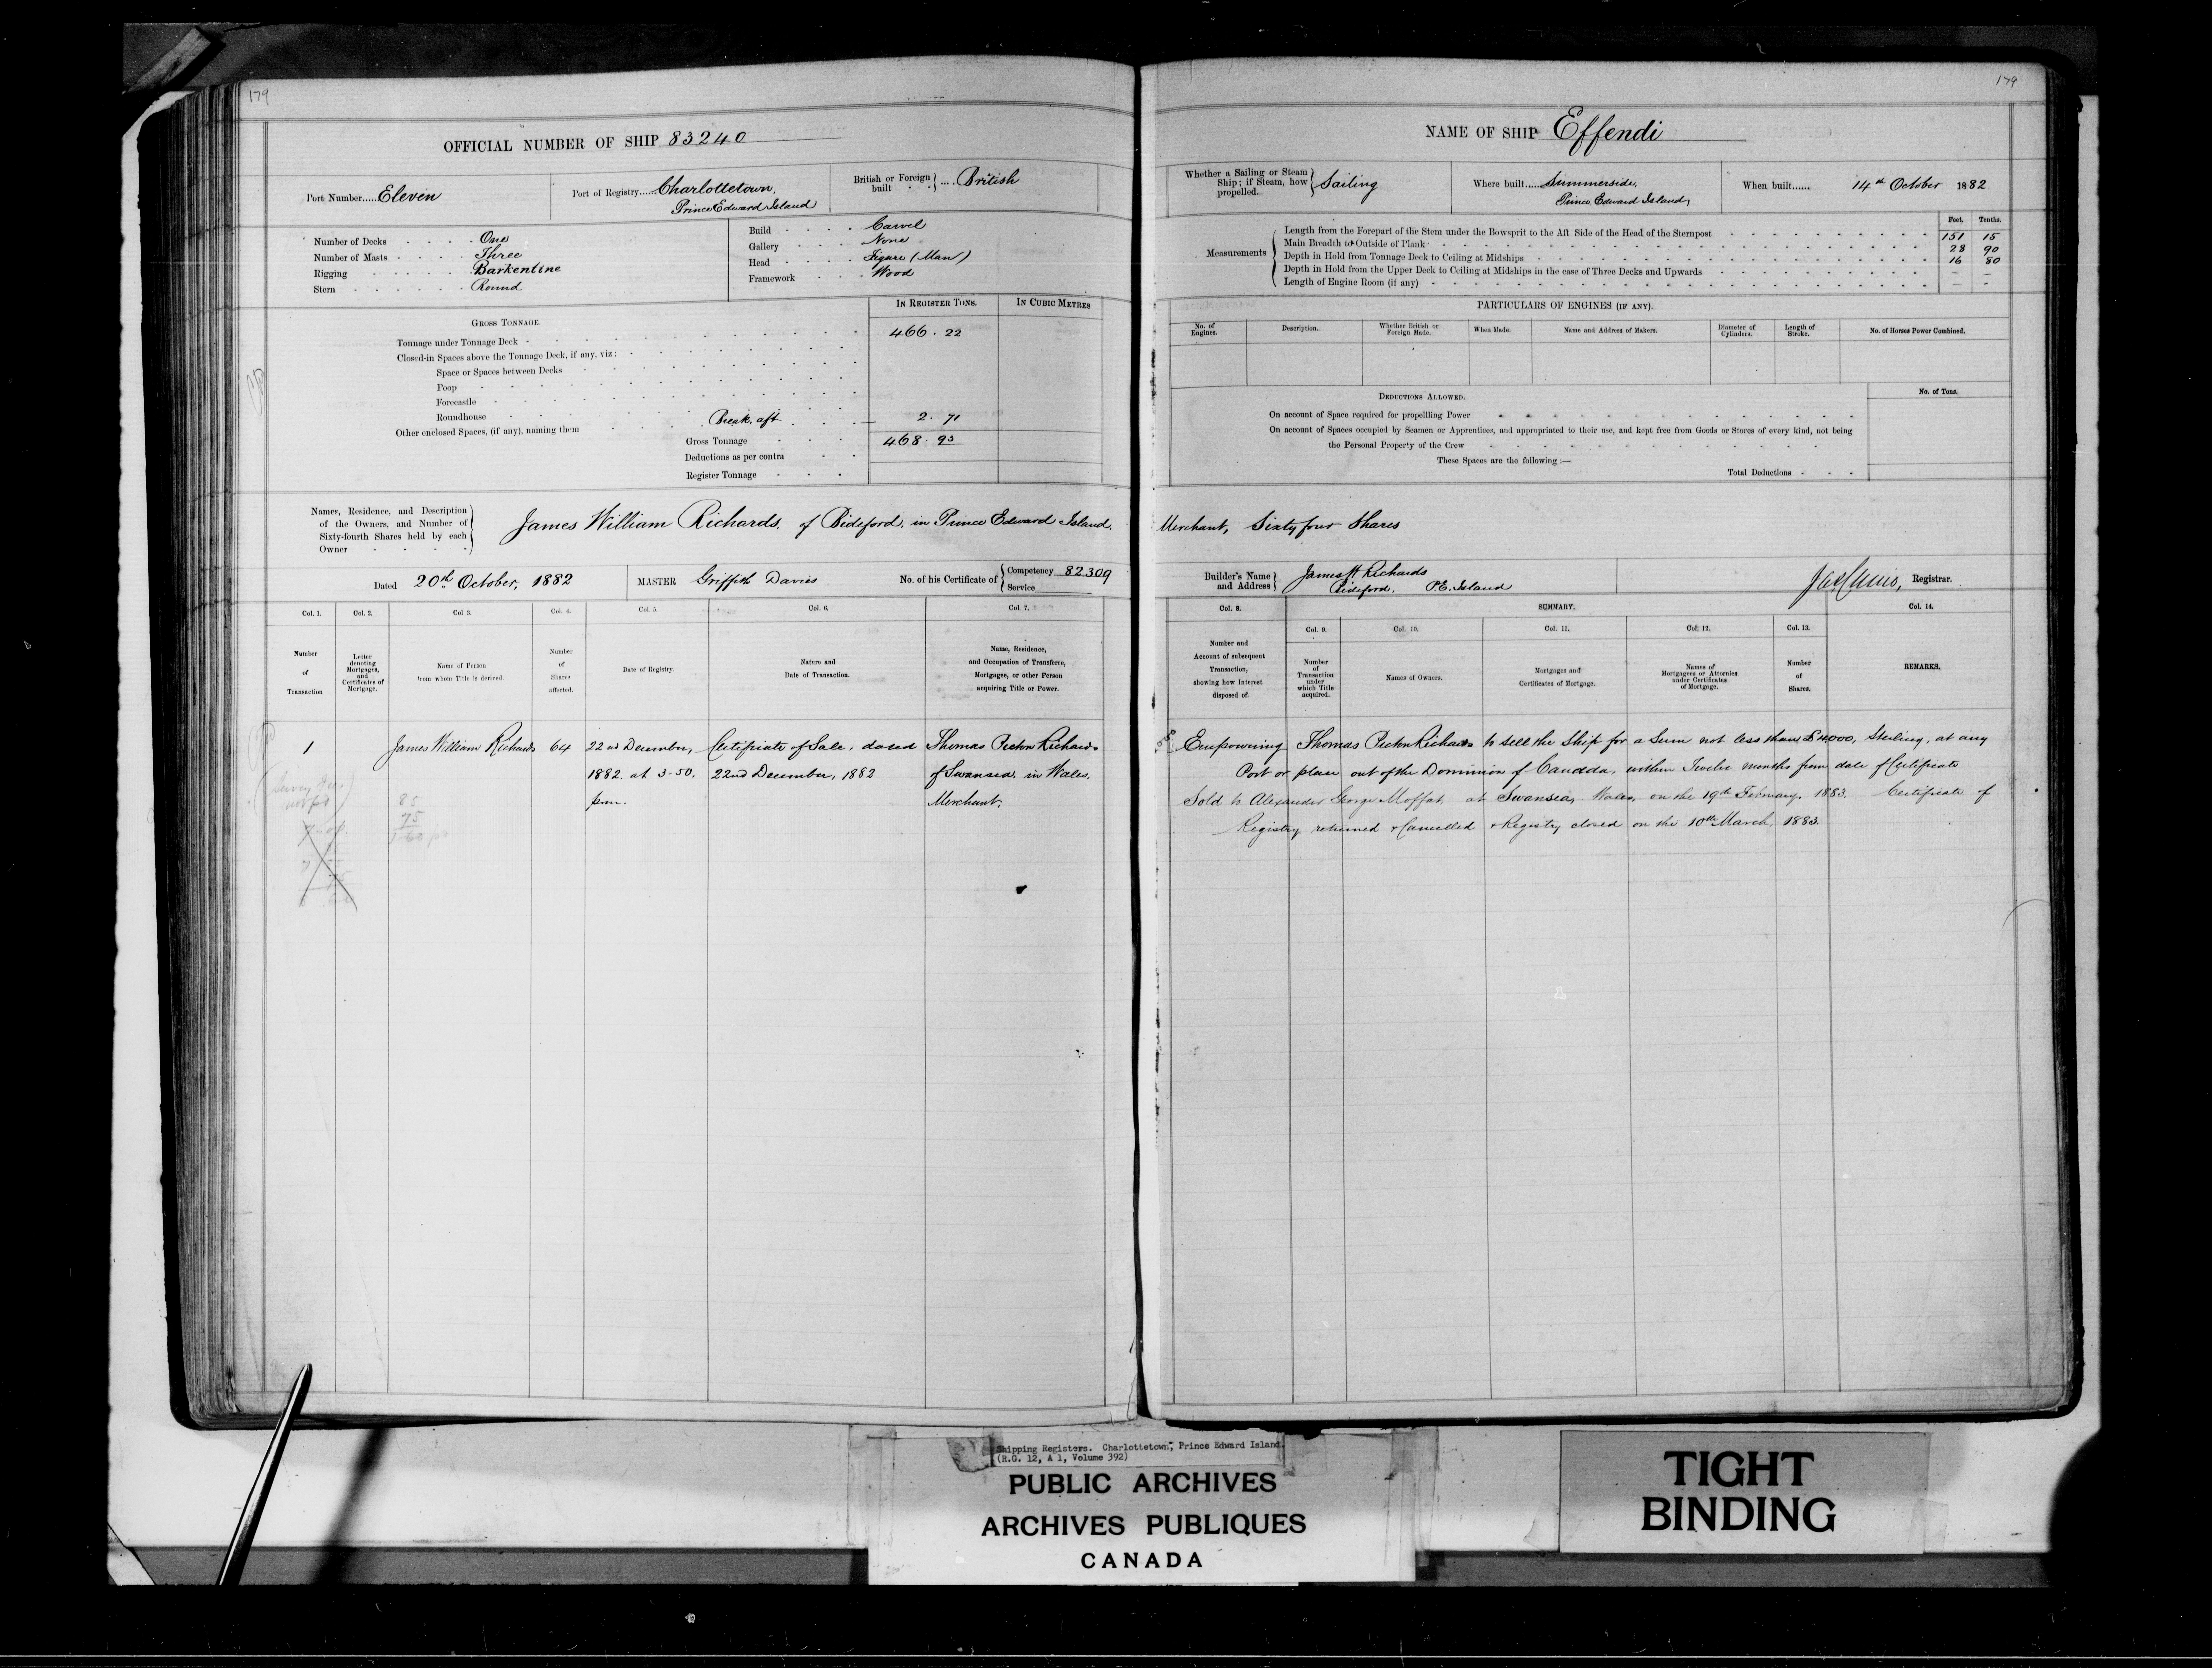 179
OFFICIAL NUMBER OF SHIP 83240
Port Number.....Eleven
Port of Registry....Charlottetown,
Prince Edward Island
British or Foreign built } .... British
Number of Decks One
Number of Masts Three
Rigging Barkentine
Stern Round
Build Carvel
Gallery None
Head Figure (Man)
Framework Wood
IN REGISTER TONS. IN CUBIC METRES
GROSS TONNAGE.
Tonnage under Tonnage Deck 466.22
Closed-in Spaces above the Tonnage Deck, if any, viz:
Space or Spaces between Decks
Poop
Forecastle
Roundhouse
Other enclosed Spaces, (if any), naming them Break aft 2.71
Gross Tonnage 468.93
Deductions as per contra
Register Tonnage
Names, Residence, and Description
of the Owners, and Number of
Sixty-fourth Shares held by each
Owner
James William Richards, of Bideford, in Prince Edward Island,
Dated 20th October, 1882
MASTER Griffith Davies
No. of his Certificate of { Competency 82309
Service
Col. 1. Col. 2. Col 3. Col. 4. Col. 5. Col. 6. Col. 7.
Number of Transaction
Letter denoting Mortgages, and Certificates of Mortgage.
Name of Person from whom Title is derived.
Number of Shares affected.
Date of Registry.
Nature and Date of Transaction.
Name, Residence, and Occupation of Transferee, Mortgagee, or other Person acquiring Title or Power.
1 James William Richards 64 22nd December, Certificate of Sale, dated Thomas Picton Richards
1882. at 3-50. 22nd December, 1882 of Swansea, in Wales.
p.m. Merchant.
85
75
179
NAME OF SHIP Effendi
Whether a Sailing or Steam Ship; if Steam, how propelled. } Sailing
Where built.....Summerside,
Prince Edward Island,
When built...... 14th October 1882
Feet. Tenths.
Measurements
Length from the Forepart of the Stem under the Bowsprit to the Aft Side of the Head of the Sternpost 151 15
Main Breadth to Outside of Plank 28 90
Depth in Hold from Tonnage Deck to Ceiling at Midships 16 80
Depth in Hold from the Upper Deck to Ceiling at Midships in the case of Three Decks and Upwards - -
Length of Engine Room (if any) - -
PARTICULARS OF ENGINES (IF ANY).
No. of Engines. Description. Whether British or Foreign Made. When Made. Name and Address of Makers. Diameter of Cylinders. Length of Stroke. No. of Horses Power Combined.
DEDUCTIONS ALLOWED. No. of Tons.
On account of Space required for propellling Power
On account of Spaces occupied by Seamen or Apprentices, and appropriated to their use, and kept free from Goods or Stores of every kind, not being
the Personal Property of the Crew
These Spaces are the following :—
Total Deductions
Merchant, Sixty four Shares
Builder's Name and Address } James H Richards
Bideford, P.E. Island
Registrar.
Col. 8. SUMMARY. Col. 14.
Col. 9. Col. 10. Col. 11. Col. 12. Col. 13.
Number and Account of subsequent Transaction, showing how Interest disposed of.
Number of Transaction under which Title acquired.
Names of Owners.
Mortgages and Certificates of Mortgage.
Names of Mortgagees or Attornies under Certificates of Mortgage.
Number of Shares.
REMARKS.
Empowering Thomas Picton Richards to sell the Ship for a Sum not less than £4000, Sterling, at any
Port or place out of the Dominion of Canada, within Twelve months from date of Certificate
Sold to Alexander George Moffat at Swansea, Wales, on the 19th February, 1883. Certificate of
Registry returned & Cancelled & Registry closed on the 10th March, 1883.
Shipping Registers. Charlottetown, Prince Edward Island.
(R.G. 12, A 1, Volume 392)
PUBLIC ARCHIVES
ARCHIVES PUBLIQUES
CANADA
TIGHT
BINDING